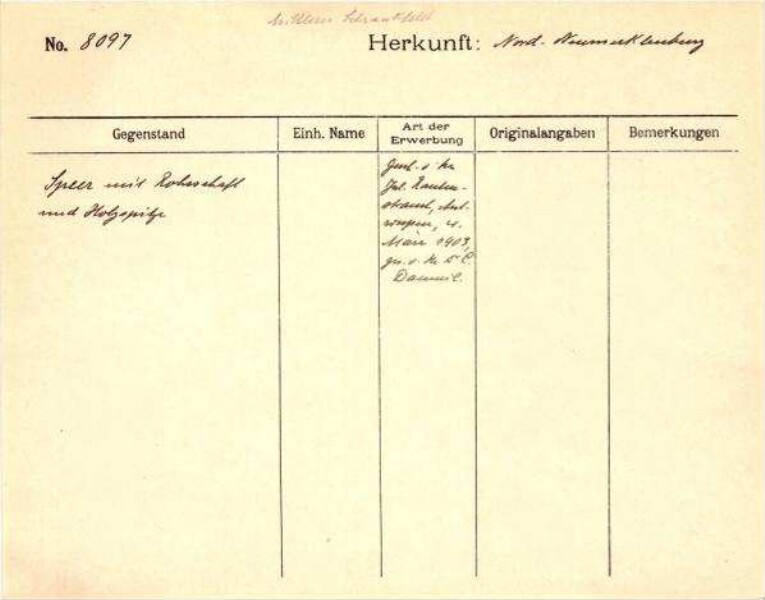 Mittleres Schrankfeld
No. 8097 Herkunft: Nord-Neumecklenburg
Gegenstand Einh. Name Art der Erwerbung Originalangaben Bemerkungen
Speer mit Rohrschaft
und Holzspitze
Gesch. v. Hr.
Jul. Rauten-
strauch, Ant-
werpen, 4.
März 1903,
ges. v. Hr. Dr. C.